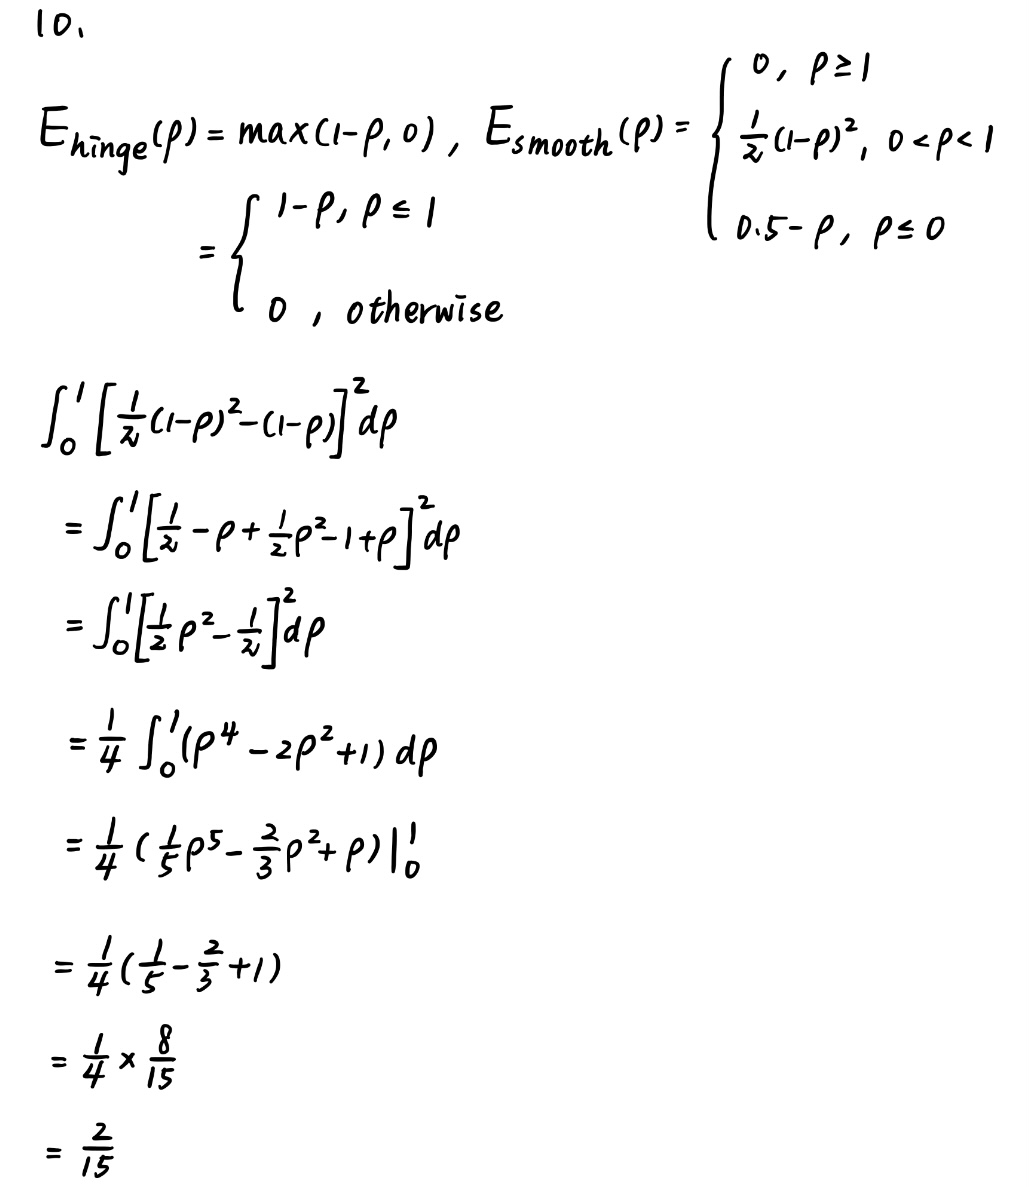 10.
E_hinge(ρ) = max(1-ρ, 0), E_smooth(ρ) = { 0, ρ ≥ 1
1/2 (1-ρ)², 0 < ρ < 1
0.5 - ρ, ρ ≤ 0
= { 1-ρ, ρ ≤ 1
0, otherwise
∫₀¹ [1/2 (1-ρ)² - (1-ρ)]² dρ
= ∫₀¹ [1/2 - ρ + 1/2 ρ² - 1 + ρ]² dρ
= ∫₀¹ [1/2 ρ² - 1/2]² dρ
= 1/4 ∫₀¹ (ρ⁴ - 2ρ² + 1) dρ
= 1/4 (1/5 ρ⁵ - 2/3 ρ² + ρ) |₀¹
= 1/4 (1/5 - 2/3 + 1)
= 1/4 × 8/15
= 2/15